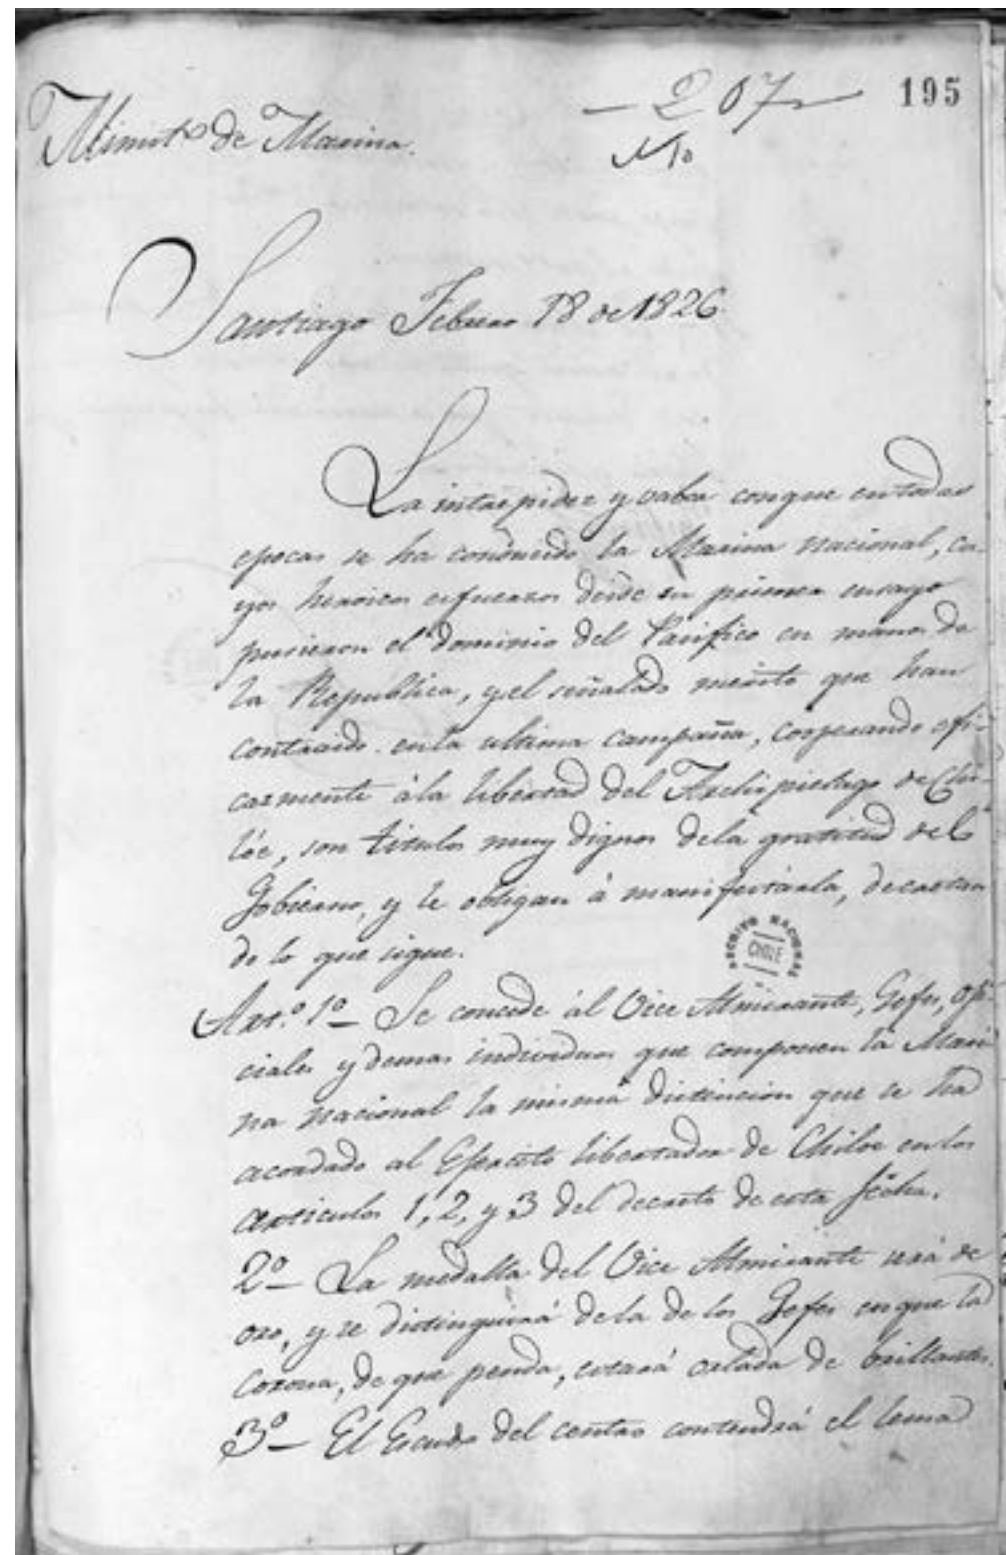 195
207
Minist.o de Marina.
Santiago Febrero 18 de 1826
La intrepidez y valor conque en todas
epocas se ha conducido la Marina Nacional, cu-
yos heroicos esfuerzos desde su primer ensayo
pusieron el dominio del Pacifico en manos de
la Republica, y el señalado merito que han
contraido en la ultima campaña, cooperando efi-
cazmente á la libertad del Archipielago de Chi-
lóe, son titulos muy dignos de la gratitud del
Gobierno, y le obligan á manifestarla, decretan
do lo que sigue.
ARCHIVO NACIONAL
CHILE
Art.o 1o_ Se concede al Vice Almirante, Gefes, ofi-
ciales y demas individuos que componen la Mari
na Nacional la misma distincion que se ha
acordado al Ejercito libertador de Chiloe en los
articulos 1, 2, y 3 del decreto de esta fecha.
2o_ La medalla del Vice Almirante será de
oro, y se distinguirá de la de los Gefes en que la
Corona, de que penda, estará orlada de brillantes.
3o_ El Escudo del centro contendrá el lema